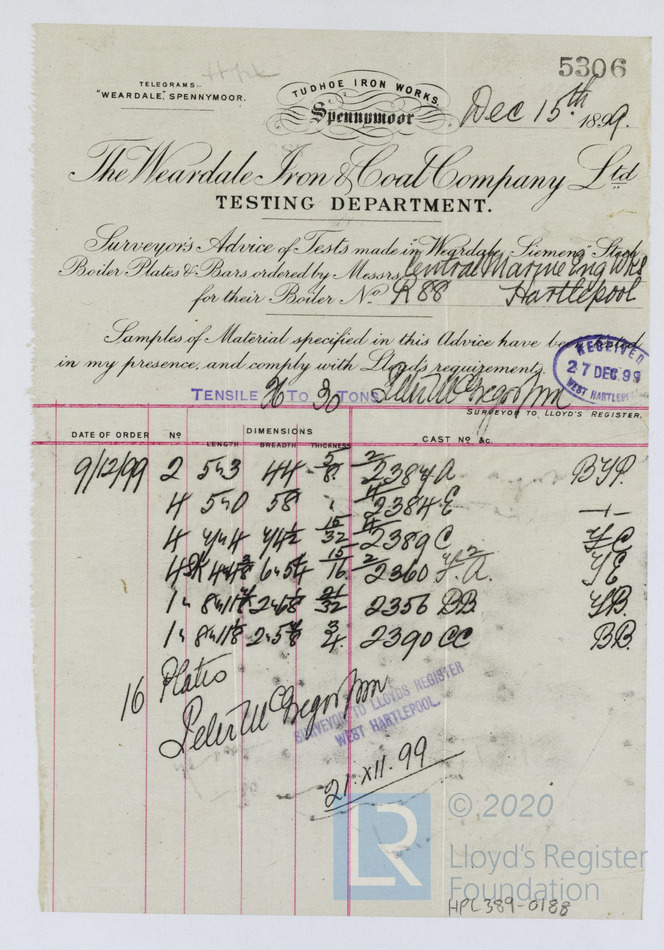 5306
Hpl
TELEGRAMS:-
"WEARDALE," SPENNYMOOR.
TUDHOE IRON WORKS,
Spennymoor
Dec 15th 1899.
The Weardale Iron & Coal Company Ltd
TESTING DEPARTMENT.
Surveyor's Advice of Tests made in "Weardale" Siemens Steel
Boiler Plates & Bars, ordered by Messrs Central Marine Eng Wks
for their Boiler No R88 Hartlepool
Samples of Material specified in this Advice have been tested
in my presence, and comply with Lloyd's requirements.
RECEIVED
27 DEC. 99
WEST HARTLEPOOL
TENSILE 26 TO 30 TONS Peter McGregor Jnr
SURVEYOR TO LLOYD'S REGISTER.
DATE OF ORDER No DIMENSIONS CAST No &c.
LENGTH BREADTH THICKNESS
9/12/99 2 5 3 44 5/8 2 2384 A
4 5 0 58 " 4 2384 E
4 15/32 4 2389 C
4 15/16 2 2360
1 21/32 2356 BB
1 3/4 2390 CC BB.
16 Plates
Peter McGregor Jnr
SURVEYOR TO LLOYDS REGISTER
WEST HARTLEPOOL.
21.XII.99
LR
© 2020
Lloyd's Register
Foundation
HPL389-0188